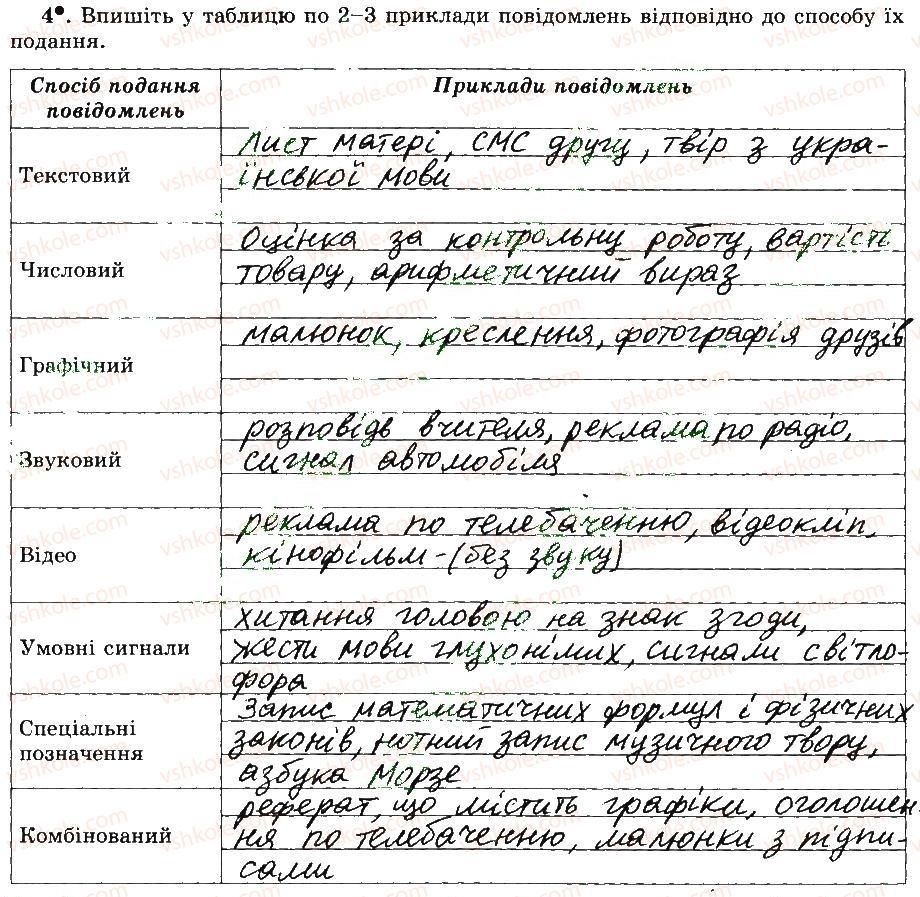 4•. Впишіть у таблицю по 2–3 приклади повідомлень відповідно до способу їх
подання.
Спосіб подання
повідомлень
Приклади повідомлень
Текстовий
Лист матері, СМС другу, твір з укра-
їнської мови
Числовий
Оцінка за контрольну роботу, вартість
товару, арифметичний вираз
Графічний
малюнок, креслення, фотографія друзів
Звуковий
розповідь вчителя, реклама по радіо,
сигнал автомобіля
Відео
реклама по телебаченню, відеокліп,
кінофільм-(без звуку)
Умовні сигнали
хитання головою на знак згоди,
жести мови глухонімих, сигнали світло-
фора
Спеціальні
позначення
Запис математичних формул і фізичних
законів, нотний запис музичного твору,
азбука Морзе
Комбінований
реферат, що містить графіки, оголошен-
ня по телебаченню, малюнки з підпи-
сами
vshkole.com